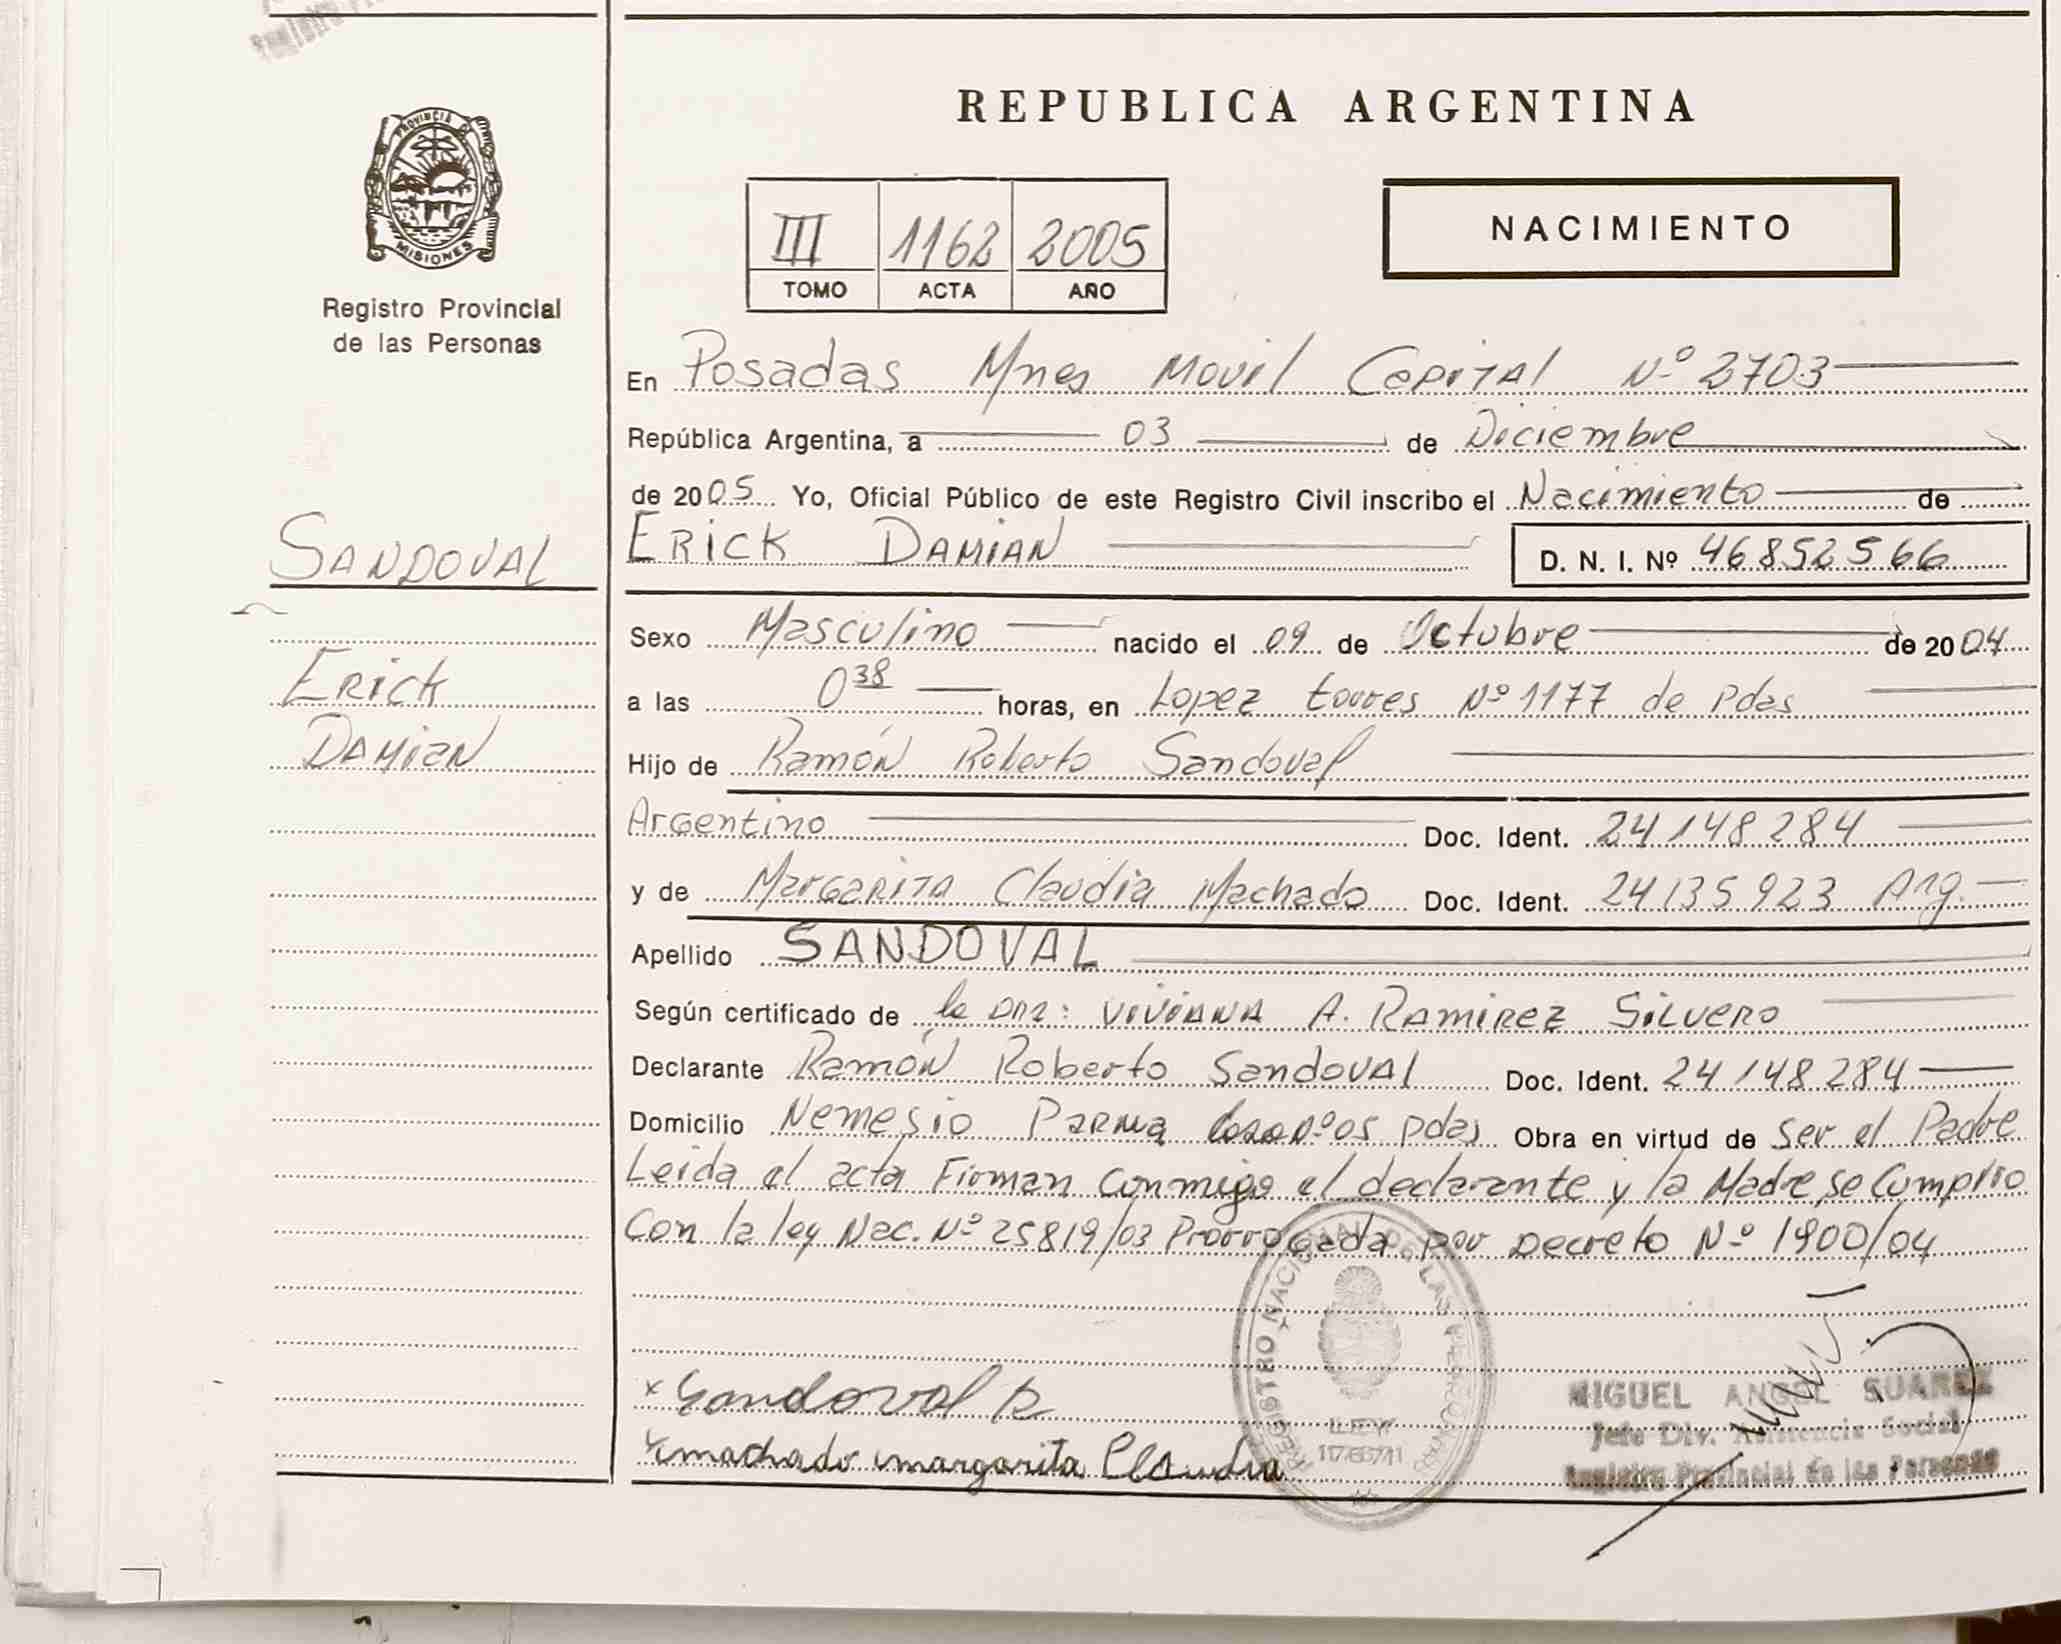 REPUBLICA ARGENTINA
PROVINCIA DE
MISIONES
Registro Provincial
de las Personas
III 1162 2005
TOMO ACTA AÑO
NACIMIENTO
En Posadas Mnes Movil Capital Nº 2703
República Argentina, a 03 de Diciembre
de 2005 Yo, Oficial Público de este Registro Civil inscribo el Nacimiento de
SANDOVAL
Erick
Damian
ERICK DAMIAN D. N. I. Nº 46852566
Sexo Masculino nacido el 09 de Octubre de 2004
a las 0 38 horas, en Lopez torres Nº 1177 de Pdas
Hijo de Ramón Roberto Sandoval
Argentino Doc. Ident. 24148284
y de Margarita Claudia Machado Doc. Ident. 24135923 Arg.
Apellido SANDOVAL
Según certificado de la Dra: Viviana A. Ramirez Silvero
Declarante Ramón Roberto Sandoval Doc. Ident. 24148284
Domicilio Nemesio Parma Pdas Obra en virtud de ser el Padre
Leida el acta Firman conmigo el declarante y la Madre se Cumplio
Con la ley Nac. Nº 25819/03 Prorrogada por Decreto Nº 1900/04
REGISTRO NACIONAL DE LAS PERSONAS
LEY
17671
x Sandoval R
x machado margarita Claudia
MIGUEL ANGEL SUAREZ
Jefe Div. Asistencia Social
Registro Provincial de las Personas